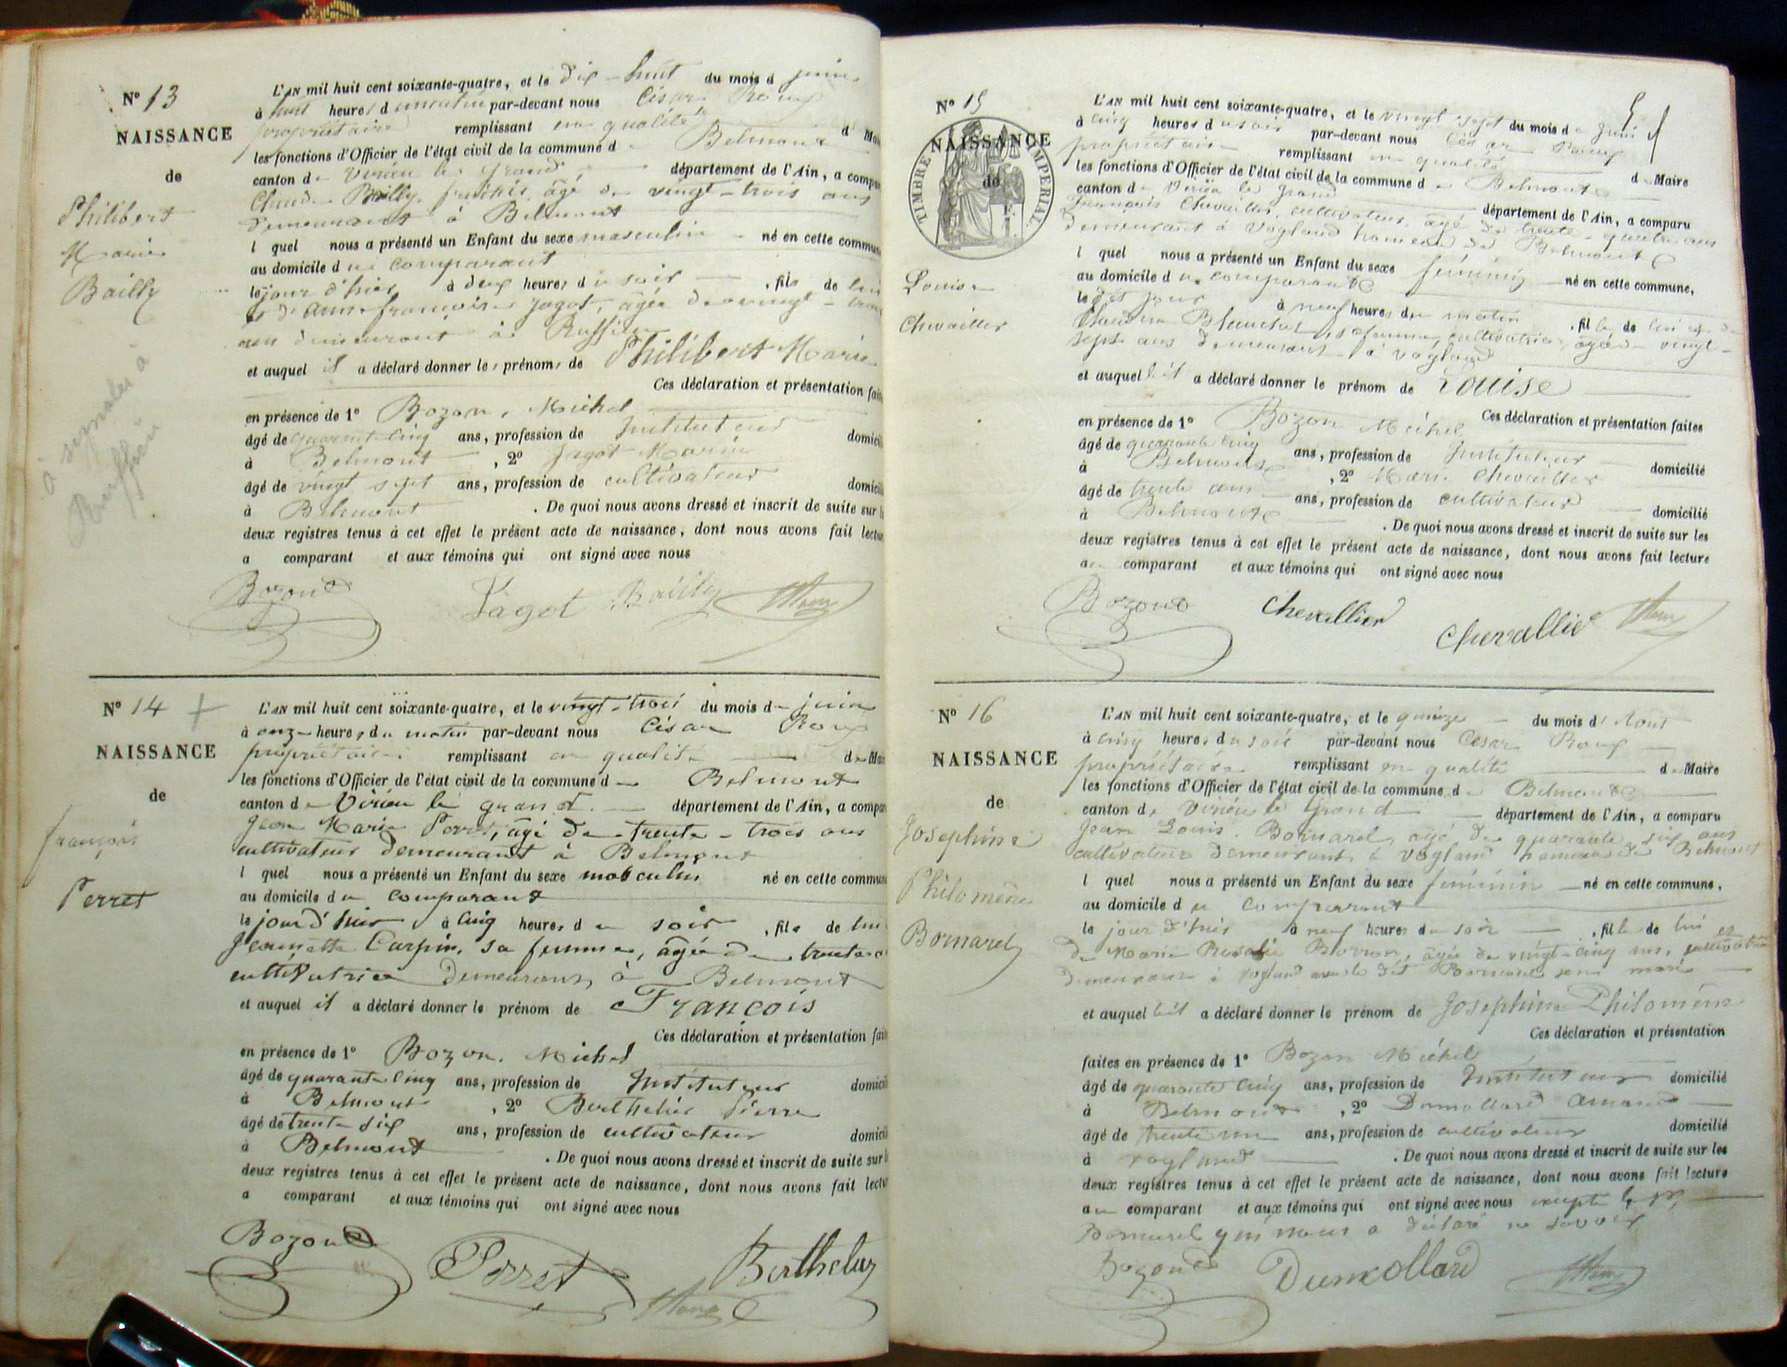 N° 13
NAISSANCE
de
Philibert
Marie
Bailly
à signaler à
Ruffieu
L'AN mil huit cent soixante-quatre, et le dix-huit du mois d juin
à huit heures du matin par-devant nous César Roux
propriétaire remplissant en qualité d Maire
les fonctions d'Officier de l'état civil de la commune d Belmont
canton de Virieu le grand, département de l'Ain, a comparu
Claude Bailly, âgé de vingt-trois ans
demeurant à Belmont
l quel nous a présenté un Enfant du sexe masculin né en cette commune
au domicile du comparant
le jour d'hier à deux heures du soir, fils de lui
et de Anne françoise Jagot, âgée de vingt-trois
ans demeurant à Ruffieu
et auquel il a déclaré donner les prénoms de Philibert Marie
Ces déclaration et présentation faites
en présence de 1° Bozon, Michel
âgé de quarante cinq ans, profession de Instituteur domicilié
à Belmont, 2° Jagot Marin
âgé de vingt sept ans, profession de cultivateur domicilié
à Belmont. De quoi nous avons dressé et inscrit de suite sur les
deux registres tenus à cet effet le présent acte de naissance, dont nous avons fait lecture
a comparant et aux témoins qui ont signé avec nous
Bozond Jagot Bailly Roux
N° 14
NAISSANCE
de
françois
Perret
L'AN mil huit cent soixante-quatre, et le vingt-trois du mois de juin
à onze heures du matin par-devant nous César Roux
propriétaire remplissant en qualité de Maire
les fonctions d'Officier de l'état civil de la commune de Belmont
canton de Virieu le grand département de l'Ain, a comparu
Jean Marie Perret, âgé de trente-trois ans
cultivateur demeurant à Belmont
l quel nous a présenté un Enfant du sexe masculin né en cette commune
au domicile du comparant
le jour d'hier à cinq heures du soir, fils de lui
Jeannette Carpin, sa femme, âgée de trente
cultivatrice demeurant à Belmont
et auquel il a déclaré donner le prénom de François
Ces déclaration et présentation faites
en présence de 1° Bozon, Michel
âgé de quarante cinq ans, profession de Instituteur domicilié
à Belmont, 2° Berthelier Pierre
âgé de trente six ans, profession de cultivateur domicilié
à Belmont. De quoi nous avons dressé et inscrit de suite sur les
deux registres tenus à cet effet le présent acte de naissance, dont nous avons fait lecture
a comparant et aux témoins qui ont signé avec nous
Bozond Perret Berthelier
Roux
N° 15
NAISSANCE
de
TIMBRE IMPERIAL
Louise
Chevallier
L'AN mil huit cent soixante-quatre, et le vingt sept du mois de juin
à cinq heures du soir par-devant nous César Roux
propriétaire remplissant en qualité de Maire
les fonctions d'Officier de l'état civil de la commune de Belmont
canton de Virieu le grand département de l'Ain, a comparu
François Chevallier, cultivateur, âgé de trente-quatre ans
demeurant à Vogland hameau de Belmont
l quel nous a présenté un Enfant du sexe féminin né en cette commune,
au domicile du comparant
le dit jour à neuf heures du matin, fille de lui et de
Claudine Blanchet sa femme, cultivatrice, âgée de vingt-
sept ans demeurant à Vogland
et auquel il a déclaré donner le prénom de Louise
Ces déclaration et présentation faites
en présence de 1° Bozon Michel
âgé de quarante cinq ans, profession de Instituteur domicilié
à Belmont, 2° Marie Chevallier
âgé de trente ans ans, profession de cultivateur domicilié
à Belmont. De quoi nous avons dressé et inscrit de suite sur les
deux registres tenus à cet effet le présent acte de naissance, dont nous avons fait lecture
au comparant et aux témoins qui ont signé avec nous
Bozond Chevallier Chevallier Roux
N° 16
NAISSANCE
de
Josephine
Philomène
Bornarel
L'AN mil huit cent soixante-quatre, et le quinze du mois d'Aout
à cinq heures du soir par-devant nous César Roux
propriétaire remplissant en qualité de Maire
les fonctions d'Officier de l'état civil de la commune de Belmont
canton de Virieu le Grand département de l'Ain, a comparu
Jean Louis Bornarel, âgé de quarante six ans
cultivateur demeurant à Vogland hameau de Belmont
l quel nous a présenté un Enfant du sexe féminin né en cette commune,
au domicile du comparant
le jour d'hier à neuf heures du soir, fille de lui et
de Marie Rosalie Borron, âgée de vingt-cinq ans, cultivatrice
demeurant à Vogland avec le dit Bornarel son mari
et auquel il a déclaré donner le prénom de Josephine Philomène
Ces déclaration et présentation
faites en présence de 1° Bozon Michel
âgé de quarante cinq ans, profession de Instituteur domicilié
à Belmont, 2° Dumollard Amand
âgé de trente un ans, profession de cultivateur domicilié
à Vogland. De quoi nous avons dressé et inscrit de suite sur les
deux registres tenus à cet effet le présent acte de naissance, dont nous avons fait lecture
au comparant et aux témoins qui ont signé avec nous excepté le
Bornarel qui nous a déclaré ne savoir
Bozond Dumollard Roux